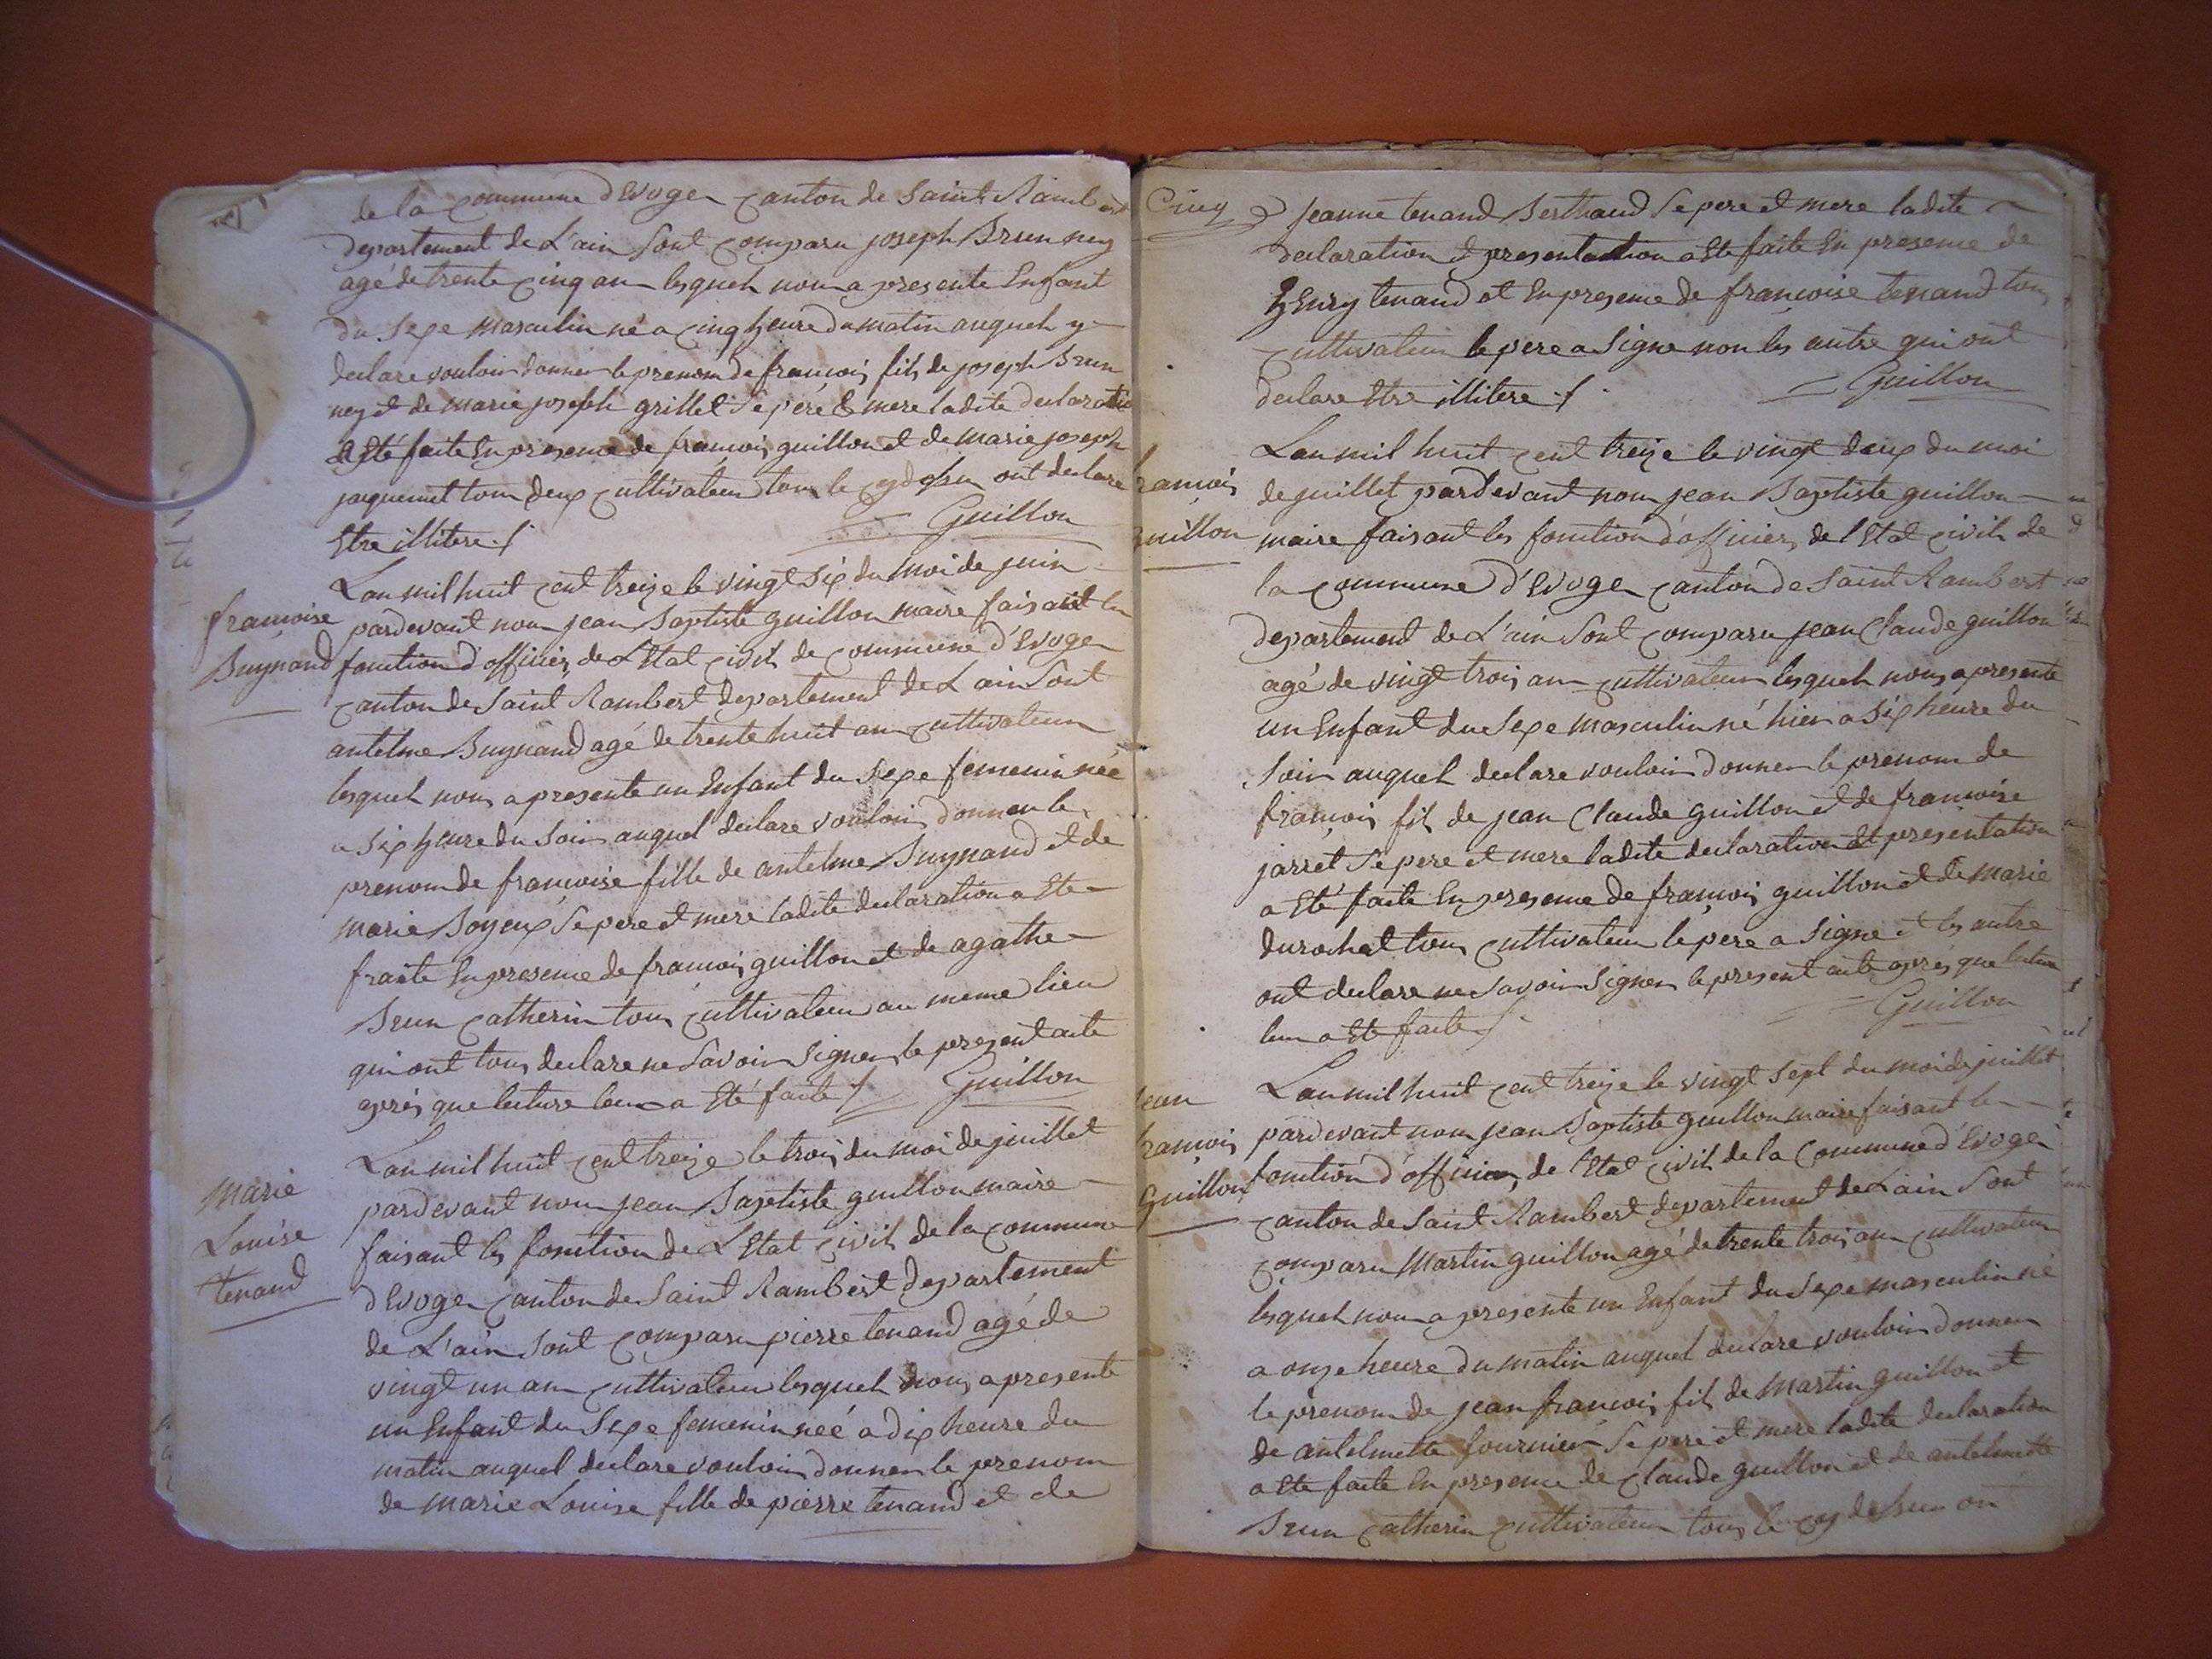 de la commune d'Evoger canton de Saint Rambert
departement de L'ain sont comparu joseph Brun ney
agé de trente cinq an lesqueh nou a presente Enfant
du Sexe masculin né a cinq heure du matin auqueh y
declare vouloir donner le prenom de francois fils de joseph Brun
ney et de marie joseph grillet Se pere & mere ladite declaratio
a Eté faite En presence de francois guillon et de marie joseph
jaquemet tou deux cultivateur tou le cy desu ont declare
Etre illitere ./.
Guillon
francoise
Buynand
Lan mil huit cent treize le vingt Six du moi de juin
pardevant nou jean Baptiste guillon maire faisant les
fonction d'officier de L'Etat civil de commune d'Evoger
canton de Saint Rambert departement de L'ain Sont
antelme Buynand agé de trente huit an cultivateur
lesqueh nous a presente un Enfant du Sexe femenin née
a Six heure du Soir auquel declare vouloir donner le
prenom de francoise fille de antelme Buynand et de
marie Boyeux Se pere et mere ladite declaration a Ete
fraite En presence de francois guillon et de agathe
Brun catherin tous cultivateur au meme lieu
qui ont tous declare ne Savoir Signer le present acte
aprés que lecture leur a Eté faite ./.
Guillon
Marie
Louise
tenand
Lan mil huit cent treize le trois du moi de juillet
pardevant nou jean Baptiste guillon maire
faisant les fonction de L'Etat civil de la commune
d'Evoger canton de Saint Rambert departement
de L'ain Sont comparu pierre tenand agé de
vingt un an cultivateur lesqueh nous a presente
un Enfant du Sexe femenin née a dix heure du
matin auquel declare vouloir donner le prenom
de marie Louise fille de pierre tenand et de
Cinq
jeanne tenand Berthaud Se pere et mere ladite
declaration et presentation a Ete faite En presence de
hEnry tenand et En presence de francoise tenand tous
cultivateur le pere a Signe non les autre qui ont
declare Etre illitere ./.
Guillon
francois
guillon
Lan mil huit cent treize le vingt deux du moi
de juillet pardevant nou jean Baptiste guillon
maire faisant les fonction d'officier de l'Etat civil de
la commune d'Evoger canton de Saint Rambert
departement de L'ain Sont comparu jean Claude guillon
agé de vingt trois an cultivateur lesqueh nous a presente
un Enfant du Sexe masculin né hier a Six heure du
Soir auquel declare vouloir donner le prenom de
francois fils de jean Claude guillon et de francoise
jarret Se pere et mere ladite declaration et presentation
a Eté faite En presence de francois guillon et de marie
durochat tous cultivateur le pere a Signe et les autre
ont declare ne Savoir Signer le present acte aprés que lecture
leur a Ete faite ./.
Guillon
jean
francois
Guillon
Lan mil huit cent treize le vingt Sept du moi de juillet
pardevant nou jean Baptiste guillon maire faisant le
fonction d'officier de l'Etat civil de la Commune d'Evoger
canton de Saint Rambert departement de L'ain Sont
comparu Martin guillon agé de trente trois an cultivateur
lesqueh nou a presente un Enfant du Sexe masculin né
a onze heure du matin auquel declare vouloir donner
le prenom de jean francois fils de Martin guillon et
de antelmette fournier Se pere et mere ladite declaration
a Ete faite En presence de Claude guillon et de antelmette
Brun catherin cultivateur tous le cy desu on